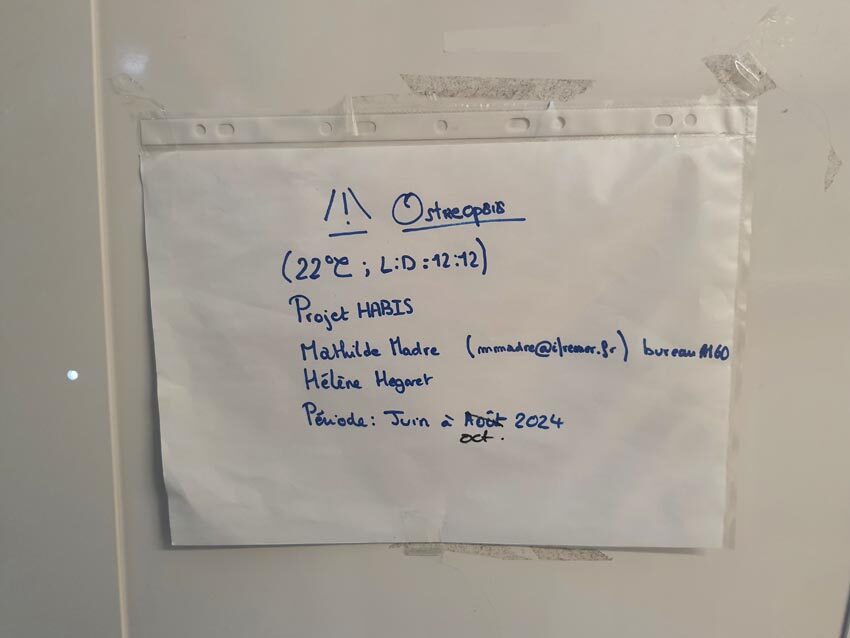 /!\ Ostreopsis
(22°C ; L:D = 12:12)
Projet HABIS
Mathilde Madre (mmadre@ifremer.fr) bureau A160
Hélène Hegaret
Période : Juin à Août 2024
oct.